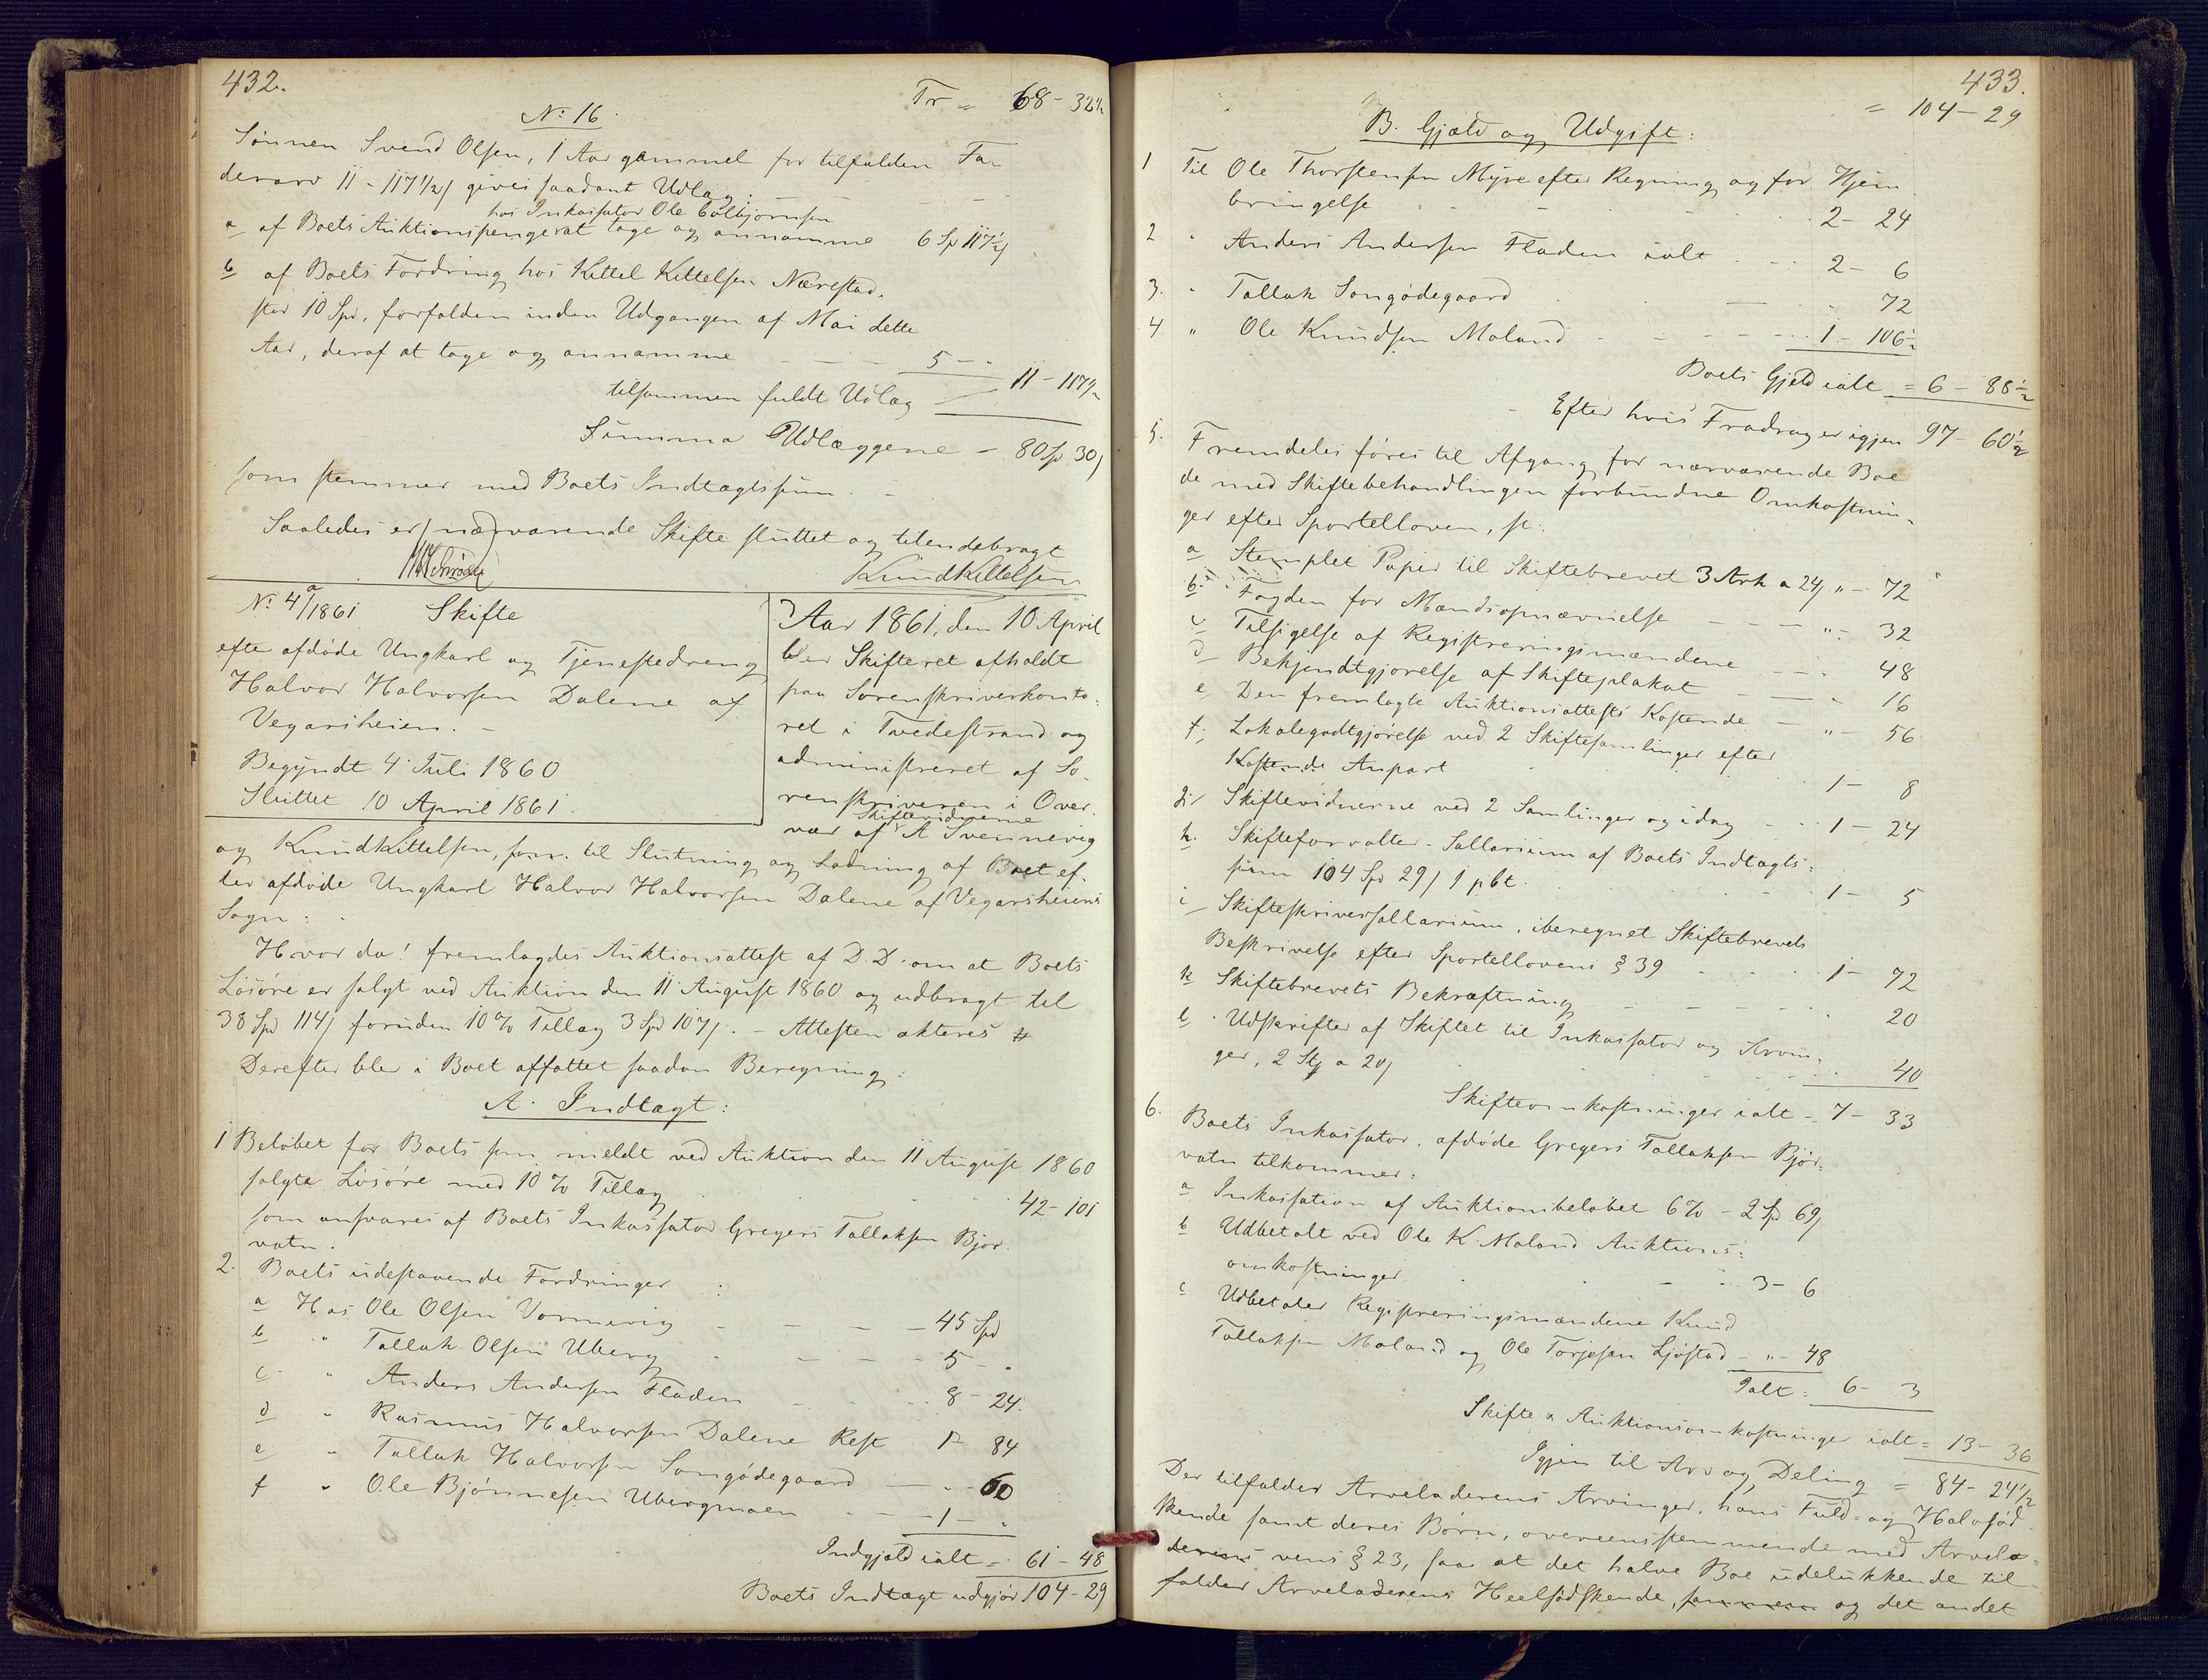 432.
Tr = 68 - 32½
No 16.
Sønnen Svend Olsen, 1 Aar gammel for tilfalden Fa-
derarv 11 - 117½ſ gives saadant Udlæg:
hos Inkassator Ole Colbjørnsen
a af Boets Auktionspenge at tage og annamme 6 Sp 117½ſ
b af Boets Fordring hos Kittel Kittelsen Nærestad,
stor 10 Spd, forfalden inden Udgangen af Mai dette
Aar, deraf at tage og annamme - - - 5 - "
tilsammen fuldt Udlæg 11 - 117½
Summa Udlæggene - 80 Sp 30ſ
som stemmer med Boets Indtægtssum. -
Saaledes er nærværende Skifte sluttet og tilendebragt
Knud Kittelsen
No 4 a/1861 Skifte
efter afdøde Ungkarl og Tjenestedreng
Halvor Halvorsen Dalene af
Vegarsheien. -
Begyndt 4 Juli 1860
Sluttet 10 April 1861.
Aar 1861, den 10 April
blev Skifteret afholdt
paa Sorenskriverkonto-
ret i Tvedestrand og
administreret af So-
renskriveren i Over-
Skiftevidnerne
vær af A Svennevig
og Knud Kittelsen, som. til Slutning og Ladning af Boet ef-
ter afdøde Ungkarl Halvor Halvorsen Dalene af Vegarsheiens
Sogn: .
Hvor da! fremlagdes Auktionsattest af D.D. om at Boets
Løsøre er solgt ved Auktion den 11 August 1860 og udbragt til
38 Spd 114ſ foruden 10 % Tillæg 3 Spd 107ſ. - Attesten akteres #
Derefter blev i Boet affattet saadan Beregning:
A. Indtægt:
1 Beløbet for Boets som meldt ved Auktion den 11 August 1860
solgte Løsøre med 10 % Tillæg . . . . 42 - 101
som ansvares af Boets Inkassator Gregers Tallaksen Bjor-
vatn.
2. Boets udestaaende Fordringer :
a Hos Ole Olsen Vormevig - - - - 45 Spd
b " Tallak Olsen Uberg - - - - 5 - "
c " Anders Andersen Fladen . . . 8 - 24.
d " Rasmus Halvorsen Dalene Rest 1 - 84
e " Tallak Halvorsen Songødegaard - - 60
f " Ole Bjønnesen Ubergmoen - - - 1 - "
Indgjæld ialt = 61 - 48
Boets Indtægt udgjør 104 - 29
433.
= 104 - 29
B. Gjæld og Udgift:
1 Til Ole Thorstensen Myre efter Regning og for Hjem-
bringelse . . . . 2 - 24
2 " Anders Andersen Fladen ialt . . 2 - 6
3. " Tallak Songødegaard . - - 72
4 " Ole Knudsen Moland - - - - 1 - 106½
Boets Gjæld ialt = 6 - 88½
Efter hvis Fradrag er igjen 97 - 60½
5. Fremdeles føres til Afgang for nærværende Boe
de med Skiftebehandlingen forbundne Omkostnin-
ger efter Sportelloven, sc:
a Stemplet Papir til Skiftebrevet 3 Ark a 24ſ " - 72
b. Fogden for Mandsopnævnelse - - - " - 32
c Tilsigelse af Registreringsmændene - - - 48
d Bekjendtgjørelse af Skifteplakat - - - 16
e Den fremlagte Auktionsattests Kostende - " - 56
f. Lokalegodtgjørelse ved 2 Skiftesamlinger efter
Kostende Anpart . . . 1 - 8
g. Skiftevidnerne ved 2 Samlinger og idag - . . 1 - 24
h. Skifteforvalter-Sallarium af Boets Indtægts-
sum 104 Spd 29ſ 1 pCt. . . . 1 - 5
i Skifteskriversallarium, iberegnet Skiftebrevets
Beskrivelse efter Sportellovens § 39 . . . 1 - 72
k Skiftebrevets Bekræftning - - - - 20
l . Udskrifter af Skiftet til Inkassator og Arvin-
ger, 2 Stk a 20ſ . . . 40
Skifteomkostninger ialt = 7 - 33
6. Boets Inkassator, afdøde Gregers Tallaksen Bjor-
vatn tilkommer:
a Inkassation af Auktionsbeløbet 6 % - 2 Spd 69ſ
b Udbetalt ved Ole K. Moland Auktions-
omkostninger . . - - 3 - 6
c Udbetaler Registreringsmændene Knud
Tallaksen Moland og Ole Torjesen Ljøstad - " - 48
Ialt = 6 - 3
Skifte & Auktionsomkostninger ialt = 13 - 36
Igjen til Arv og Deling = 84 - 24½
Der tilfalder Arveladerens Arvinger, hans Fuld- og Halvsød-
skende samt deres Børn, overeensstemmende med Arvelo-
vens § 23, saa at det halve Boe udelukkende til-
falder Arveladerens Heelsødskende, og det andet